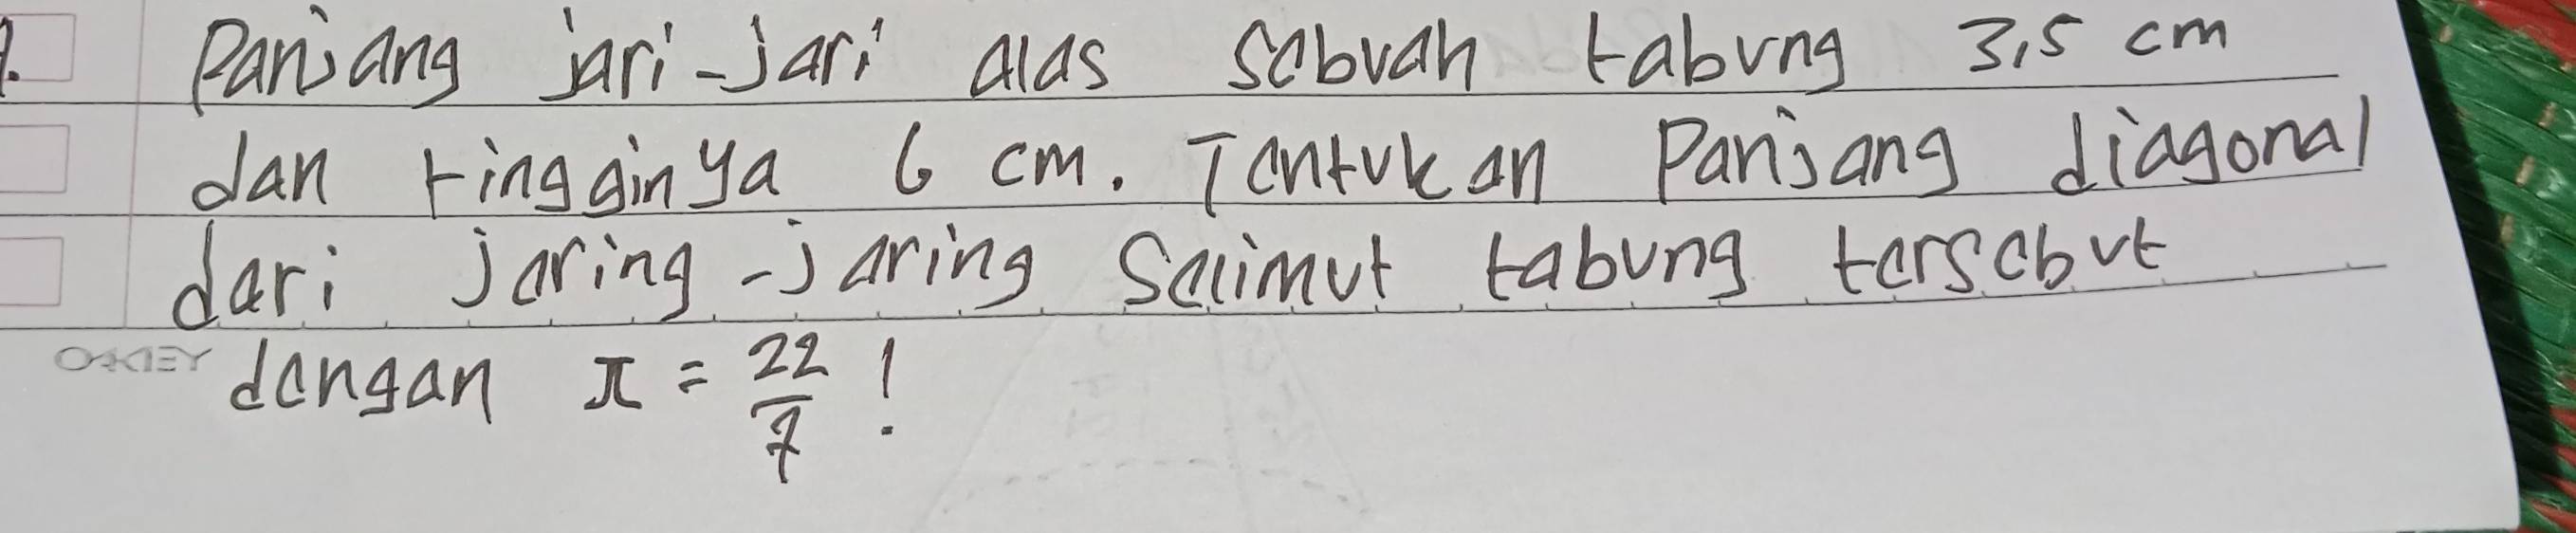 Panjang jari-jari alas sebuah tabung 3,5 cm
dan tingginya 6 cm. Tentukan Panjang diagonal
dari jaring-jaring selimut tabung tersebut
OKEY dengan π = 22/7 !